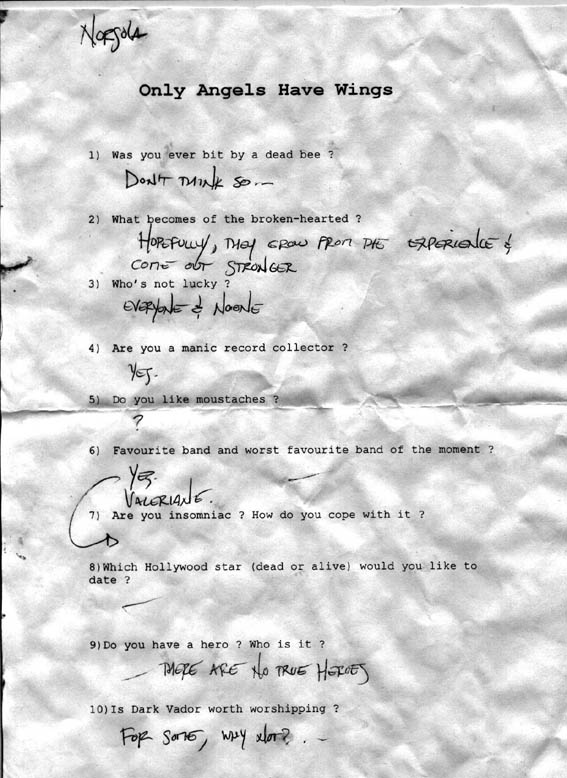 Norsola
Only Angels Have Wings
1) Was you ever bit by a dead bee ?
DON'T THINK SO.—
2) What becomes of the broken-hearted ?
HOPEFULLY, THEY GROW FROM THE EXPERIENCE &
COME OUT STRONGER
3) Who's not lucky ?
EVERYONE & NOONE
4) Are you a manic record collector ?
YES.
5) Do you like moustaches ?
?
6) Favourite band and worst favourite band of the moment ?
YES.
VALERIANE.
7) Are you insomniac ? How do you cope with it ?
8)Which Hollywood star (dead or alive) would you like to
date ?
—
9)Do you have a hero ? Who is it ?
— THERE ARE NO TRUE HEROES
10)Is Dark Vador worth worshipping ?
FOR SOME, WHY NOT?. –